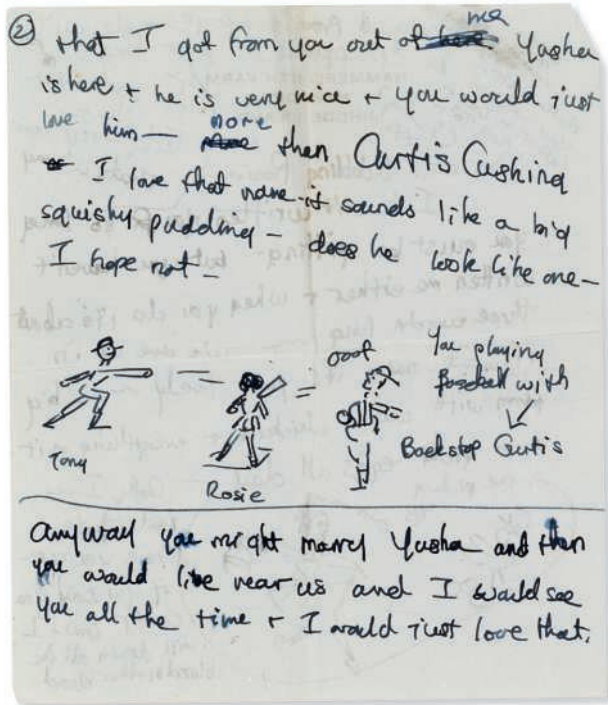 ②
that I got from you out of me Yusha
is here + he is very nice + you would just
love him — more then Curtis Cushing
I love that name - it sounds like a big
squishy pudding - does he look like one -
I hope not -
ooof
You playing
Baseball with
Backstop Curtis
Tony
Rosie
anyway you might marry Yusha and then
you would live near us and I would see
you all the time + I would just love that.